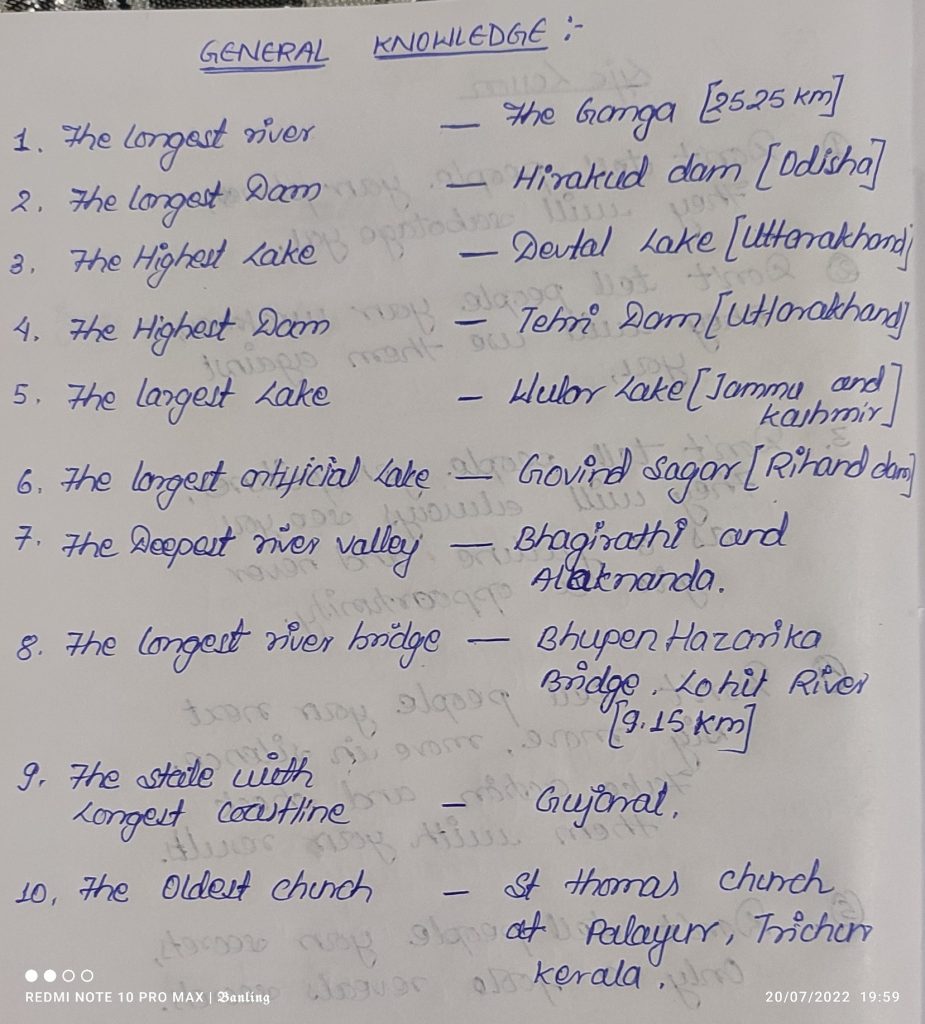 GENERAL KNOWLEDGE :-
1. The longest river — The Ganga [2525 km]
2. The longest Dam — Hirakud dam [Odisha]
3. The Highest Lake — Devtal Lake [Uttarakhand]
4. The Highest Dam — Tehri Dam [Uttarakhand]
5. The largest Lake — Wular Lake [Jammu and
Kashmir]
6. The longest artificial Lake — Govind Sagar [Rihand dam]
7. The Deepest river valley — Bhagirathi and
Alaknanda.
8. The longest river bridge — Bhupen Hazarika
Bridge. Lohit River
[9.15 km]
9. The state with
Longest coastline — Gujarat.
10. The Oldest church — St thomas church
at Palayur, Trichur
Kerala.
REDMI NOTE 10 PRO MAX | Banling
20/07/2022 19:59